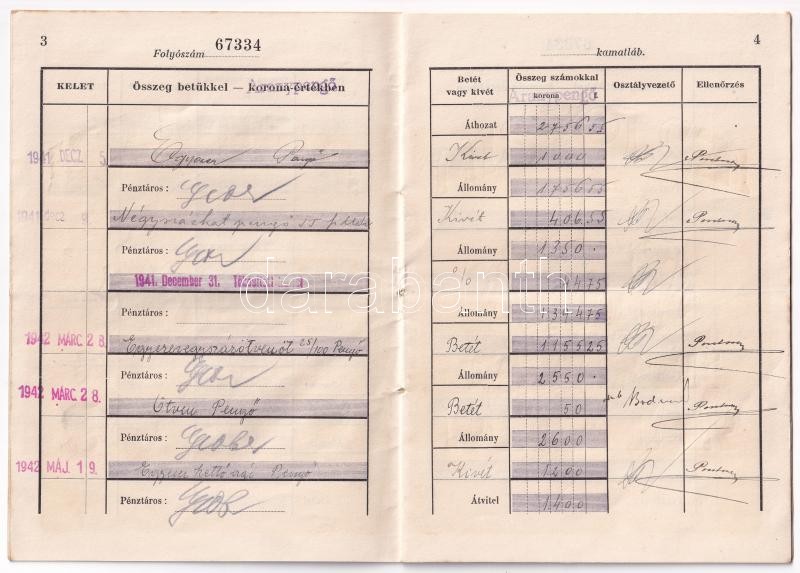 3
Folyószám 67334
KELET
Összeg betükkel — korona-értékben
Aranypengő
1941 DECZ 5.
Egyezer Pengő
Pénztáros :
1941 DECZ 9.
Négyszázhat pengő 55 fillér
Pénztáros :
1941. December 31.
Pénztáros :
1942 MÁRC 28.
Egyezeregyszázötvenöt 25/100 Pengő
Pénztáros :
1942 MÁRC 28.
Ötven Pengő
Pénztáros :
1942 MÁJ. 19.
Egyezer kettőszáz Pengő
Pénztáros :
4
kamatláb.
Betét vagy kivét
Összeg számokkal
korona f.
Aranypengő
Osztályvezető
Ellenőrzés
Áthozat 2756 55
Kivét 1000
Állomány 1756 55
Kivét 406 55
Állomány 1350 .
% 44 75
Állomány 1394 75
Betét 1155 25
Állomány 2550 .
Betét 50
Állomány 2600
Kivét 1200
Átvitel 1400
darabanth